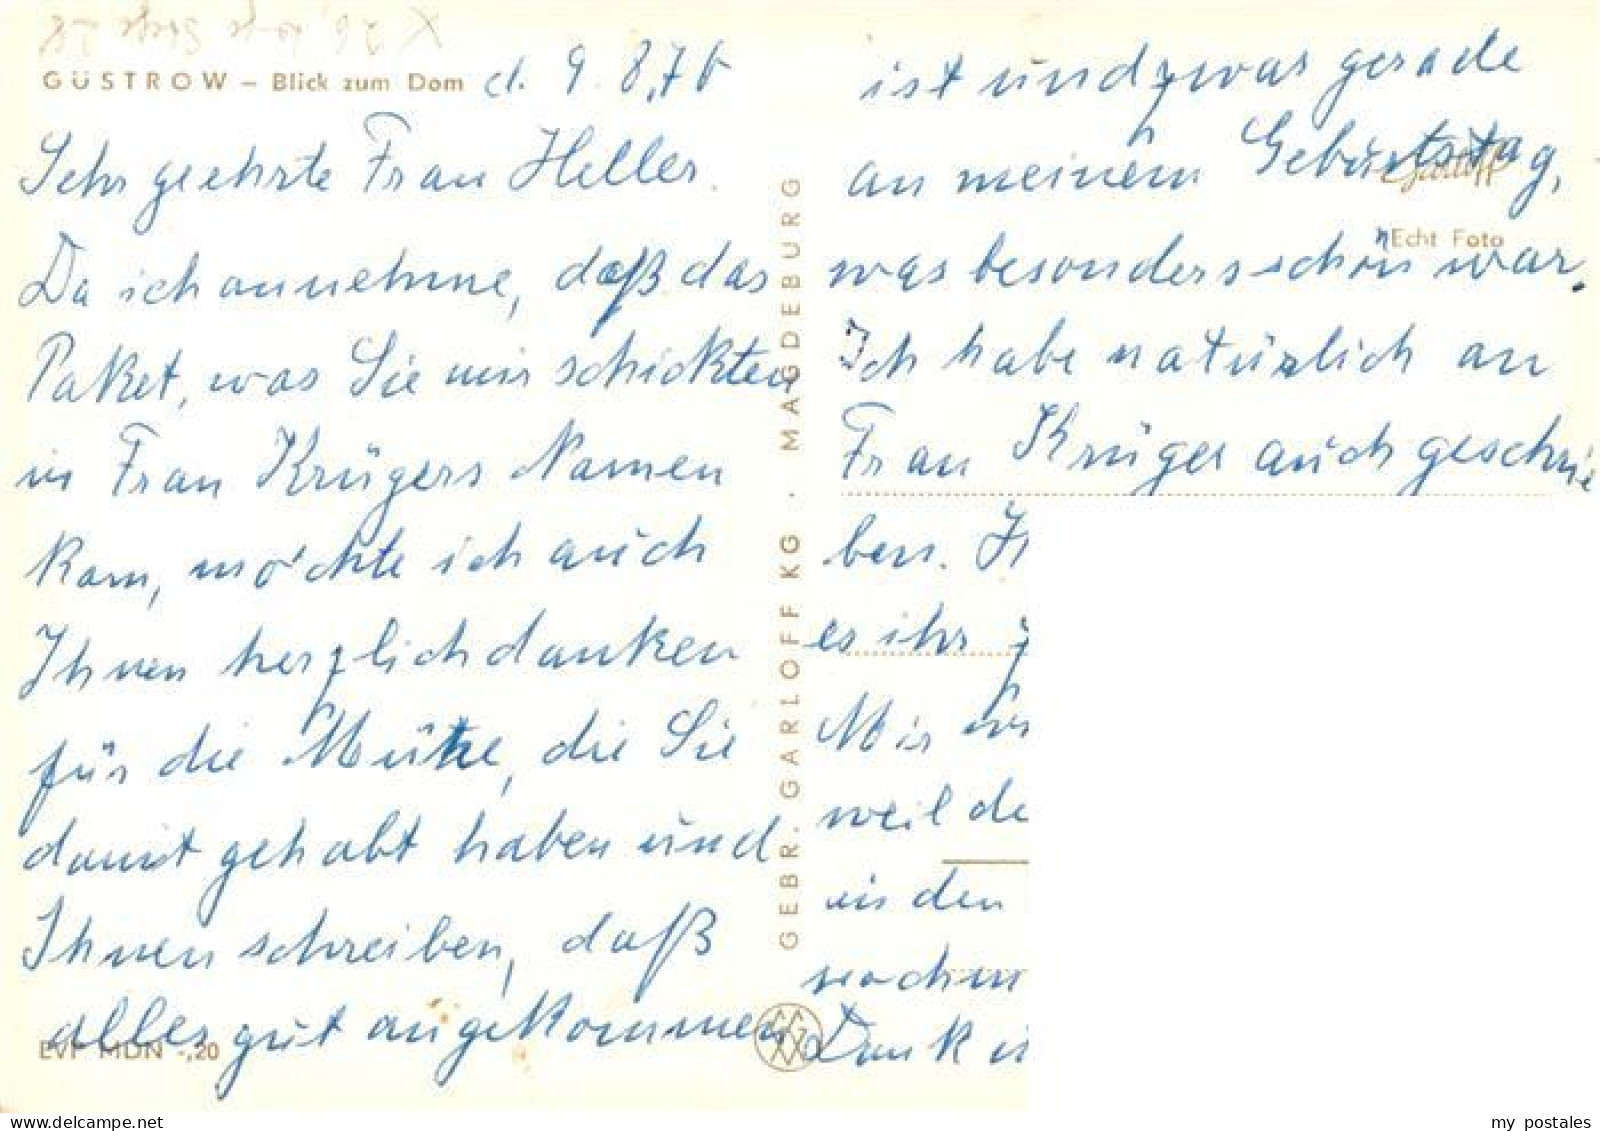 GÜSTROW – Blick zum Dom d. 9. 8. 76
Sehr geehrte Frau Heller.
Da ich annehme, daß das
Paket, was Sie mir schickten
in Frau Krügers Namen
kam, möchte ich auch
Ihnen herzlich danken
für die Mühe, die Sie
damit gehabt haben und
Ihnen schreiben, daß
alles gut angekommen
EVP MDN -,20
GEBR. GARLOFF KG · MAGDEBURG
ist und zwar gerade
an meinem Geburtstag,
Garloff
Echt Foto
was besonders schön war.
Ich habe natürlich an
Frau Krüger auch geschrie
ben.
es ihr
Mir
weil
in den
Dank
my postales